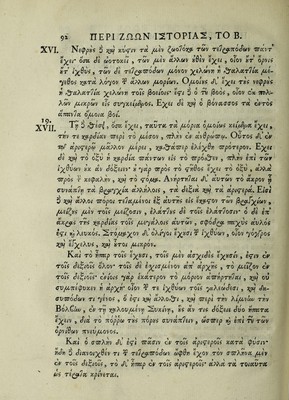 92 ΠΕΡΙ ΖΩΩΝ ΙΣΤΟΡΙΑΣ, ΤΟ Β.
XVI. Νεφροὺς καὶ κύστιν τὰ μὲν ζωοτόκα τῶν τετραπόδων πάντ'
ἔχει· ὅσα δὲ ὠοτοκεῖ, τῶν μὲν ἄλλων οὐδὲν ἔχει, οὔτ' ὄρνις
οὔτ' ἰχθύς, τῶν δὲ τετραπόδων μόνον χελώνη ἡ θαλαττία μέ-
γεθος κατὰ λόγον τῶν ἄλλων μορίων. Ὁμοίους δ' ἔχει τοὺς νεφροὺς
ἡ θαλαττία χελώνη τοῖς βοείοις· ἔστι δ' ὁ τοῦ βοὸς, οἷον ἐκ πολ-
λῶν μικρῶν εἷς συγκείμενος. Ἔχει δὲ καὶ ὁ βόνασσος τὰ ἐντὸς
ἅπαντα ὅμοια βοΐ.
19.
XVII. Τῇ δὲ θέσει, ὅσα ἔχει, ταῦτα τὰ μόρια ὁμοίως κείμενα ἔχει,
τήν τε καρδίαν περὶ τὸ μέσον, πλὴν ἐν ἀνθρώπῳ. Οὗτος δ' ἐν
τῷ ἀριστερῷ μᾶλλον μέρει, καθάπερ ἐλέχθη πρότερον. Ἔχει
δὲ καὶ τὸ ὀξὺ ἡ καρδία πάντων εἰς τὸ πρόσθεν, πλὴν ἐπὶ τῶν
ἰχθύων οὐκ ἂν δόξειεν· οὐ γὰρ πρὸς τὸ στῆθος ἔχει τὸ ὀξὺ, ἀλλὰ
πρὸς τὴν κεφαλὴν, καὶ τὸ στόμα. Ἀνήρτηται δ' αὐτῶν τὸ ἄκρον ᾗ
συνάπτει τὰ βραγχία ἀλλήλοις, τὰ δεξιὰ καὶ τὰ ἀριστερά. Εἰσὶ
δὲ καὶ ἄλλοι πόροι τεταμένοι ἐξ αὐτῆς εἰς ἕκαστον τῶν βραγχίων,
μείζους μὲν τοῖς μείζοσιν, ἐλάττους δὲ τοῖς ἐλάττοσιν· ὁ δὲ ἐπ'
ἄκρας τῆς καρδίας τοῖς μεγάλοις αὐτῶν, σφόδρα παχὺς αὐλός
ἐστι καὶ λευκός. Στόμαχον δ' ὀλίγοι ἔχουσι τῶν ἰχθύων, οἷον γόγγρος
καὶ ἔγχελυς, καὶ οὗτοι μικρόν.
Καὶ τὸ ἧπαρ τοῖς ἔχουσι, τοῖς μὲν ἀσχιδὲς ἔχουσι, ἐστὶν ἐν
τοῖς δεξιοῖς ὅλον· τοῖς δὲ ἐσχισμένον ἀπ' ἀρχῆς, τὸ μεῖζον ἐν
τοῖς δεξιοῖς· ἐνίοις γὰρ ἑκάτερον τὸ μόριον ἀπήρτηται, καὶ οὐ
συμπέφυκεν ἡ ἀρχὴ· οἷον τῶν τε ἰχθύων τοῖς γαλεώδεσι, καὶ δα-
συπόδων τι γένος, ὅ ἐστι καὶ ἄλλοθι, καὶ περὶ τὴν λίμνην τὴν
Βόλβην, ἐν τῇ καλουμένῃ Συκίνῃ, οὓς ἄν τις δόξειε δύο ἥπατα
ἔχειν, διὰ τὸ πόρρω τοὺς πόρους συνάπτειν, ὥσπερ καὶ ἐπὶ τοῦ τῶν
ὀρνίθων πνεύμονος.
Καὶ ὁ σπλὴν δ' ἐστὶ πᾶσιν ἐν τοῖς ἀριστεροῖς κατὰ φύσιν·
ἤδη δὲ διανοιχθέν τι τῶν τετραπόδων ὤφθη ἔχον τὸν σπλῆνα μὲν
ἐν τοῖς δεξιοῖς, τὸ δ' ἧπαρ ἐν τοῖς ἀριστεροῖς· ἀλλὰ τὰ τοιαῦτα
ὡς τέρατα κρίνεται.